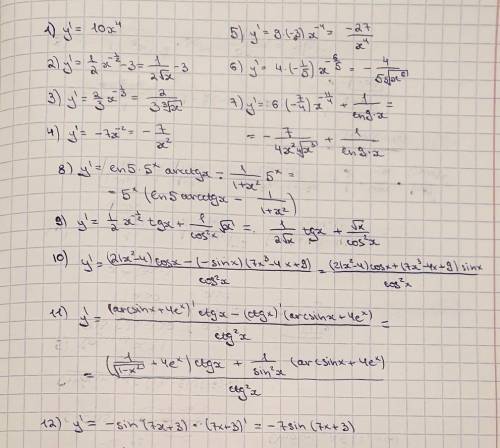 1) y' = 10x⁴
2) y' = 1/2 x^(-1/2) - 3 = 1/(2√x) - 3
3) y' = 2/3 x^(-1/3) = 2/(3∛x)
4) y' = -7x⁻² = -7/x²
5) y' = 9·(-3)x⁻⁴ = -27/x⁴
6) y' = 4·(-1/5)x^(-6/5) = -4/(5 ⁵√x⁶)
7) y' = 6(-7/4)x^(-11/4) + 1/(ln9·x) =
= -7/(4x²∜x³) + 1/(ln9·x)
8) y' = ln5·5ˣ arcctgx - 1/(1+x²) 5ˣ =
= 5ˣ (ln5 arcctgx - 1/(1+x²))
9) y' = 1/2 x^(-1/2) tgx + 1/cos²x √x = 1/(2√x) tgx + √x/cos²x
10) y' = ((21x²-4)cosx - (-sinx)(7x³-4x+9))/cos²x = ((21x²-4)cosx + (7x³-4x+9)sinx)/cos²x
11) y' = ((arcsinx+4eˣ)' ctgx - (ctgx)' (arcsinx+4eˣ))/ctg²x =
= ((1/√(1-x²) + 4eˣ) ctgx + 1/sin²x (arcsinx+4eˣ))/ctg²x
12) y' = -sin(7x+3)·(7x+3)' = -7sin(7x+3)